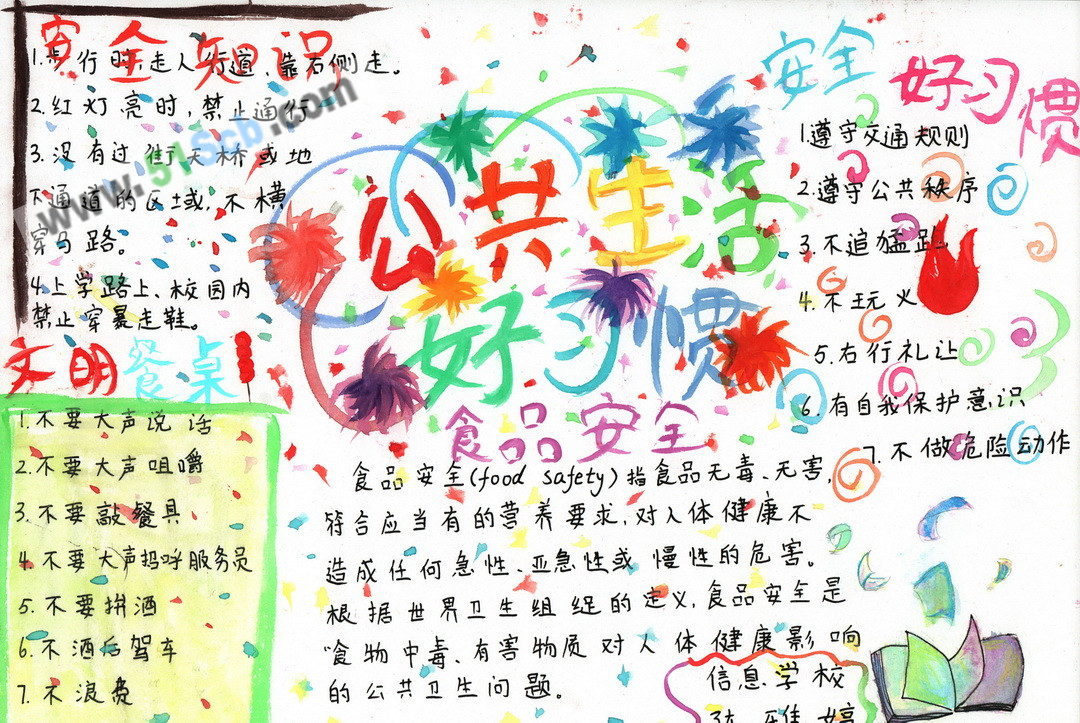 安全知识
1.步行时,走人行道、靠右侧走。
2.红灯亮时,禁止通行
3.没有过街天桥或地
下通道的区域,不横
穿马路。
4.上学路上、校园内
禁止穿暴走鞋。
www.51scb.com
文明餐桌
1.不要大声说话
2.不要大声咀嚼
3.不要敲餐具
4.不要大声呜呼服务员
5.不要拼酒
6.不酒后驾车
7.不浪费
公共生活
好习惯
食品安全
食品安全(food safety)指食品无毒、无害,
符合应当有的营养要求,对人体健康不
造成任何急性、亚急性或慢性的危害。
根据世界卫生组织的定义,食品安全是
“食物中毒、有害物质对人体健康影响
的公共卫生问题。
安全
好习惯
1.遵守交通规则
2.遵守公共秩序
3.不追猛跑
4.不玩火
5.右行礼让
6.有自我保护意识
7.不做危险动作
信息学校